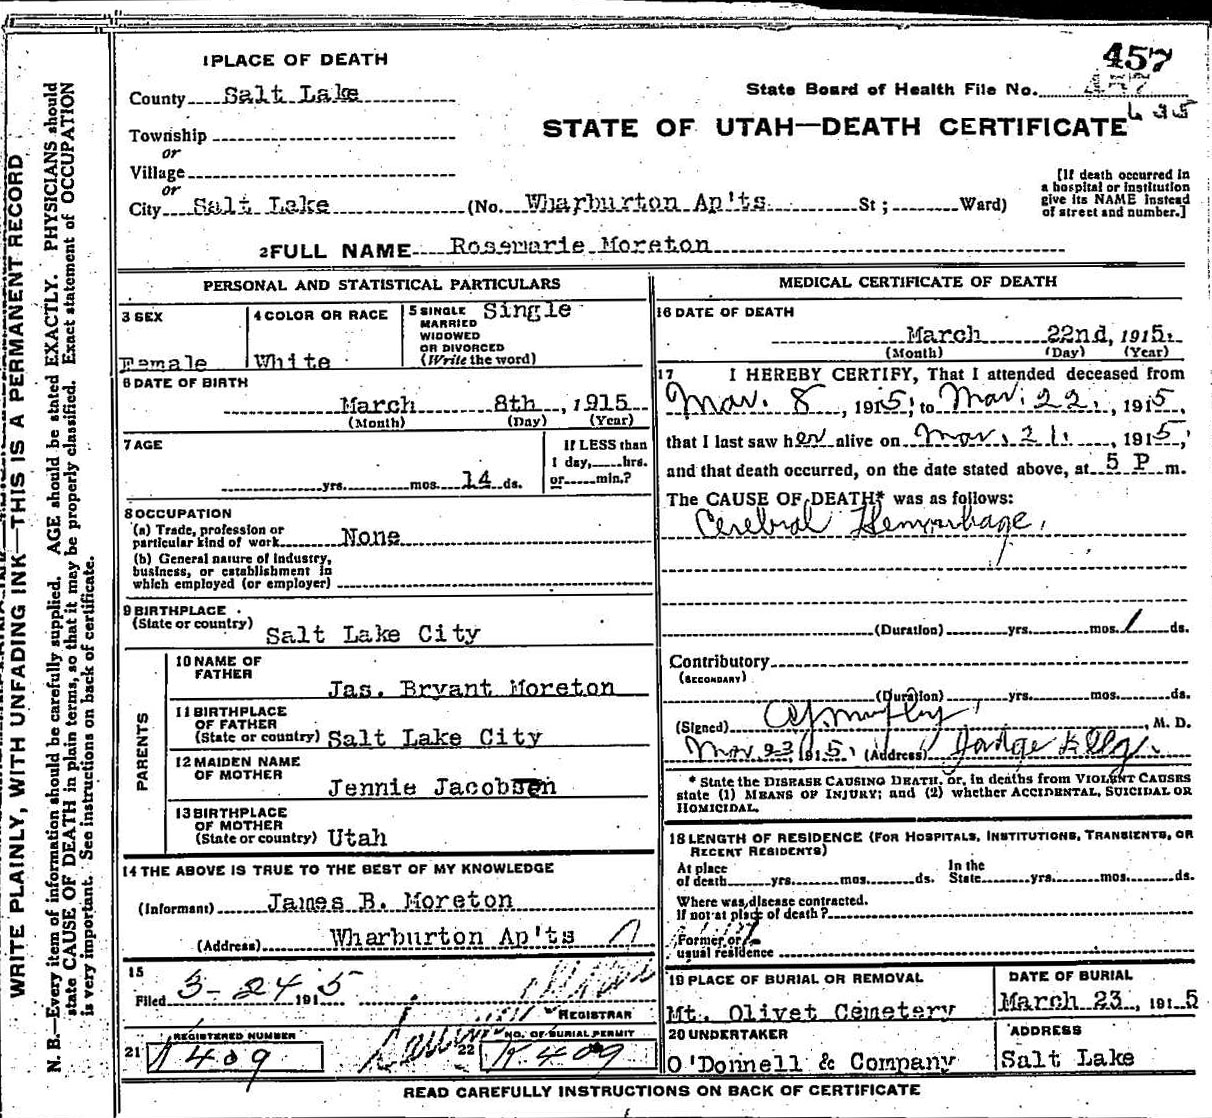 WRITE PLAINLY, WITH UNFADING INK—THIS IS A PERMANENT RECORD
N. B.—Every item of information should be carefully supplied. AGE should be stated EXACTLY. PHYSICIANS should
state CAUSE OF DEATH in plain terms, so that it may be properly classified. Exact statement of OCCUPATION
is very important. See instructions on back of certificate.
457
1 PLACE OF DEATH
County Salt Lake
State Board of Health File No. 457
635
STATE OF UTAH—DEATH CERTIFICATE
Township
or
Village
or
City Salt Lake (No. Wharburton Ap'ts St; Ward)
[If death occurred in
a hospital or institution
give its NAME instead
of street and number.]
2 FULL NAME Rosemarie Moreton
PERSONAL AND STATISTICAL PARTICULARS
3 SEX
Female
4 COLOR OR RACE
White
5 SINGLE Single
MARRIED
WIDOWED
OR DIVORCED
(Write the word)
6 DATE OF BIRTH
March 8th, 1915
(Month) (Day) (Year)
7 AGE
yrs. mos. 14 ds.
If LESS than
1 day, hrs.
or min.?
8 OCCUPATION
(a) Trade, profession or
particular kind of work None
(b) General nature of industry,
business, or establishment in
which employed (or employer)
9 BIRTHPLACE
(State or country)
Salt Lake City
PARENTS
10 NAME OF
FATHER
Jas. Bryant Moreton
11 BIRTHPLACE
OF FATHER
(State or country) Salt Lake City
12 MAIDEN NAME
OF MOTHER
Jennie Jacobsen
13 BIRTHPLACE
OF MOTHER
(State or country) Utah
14 THE ABOVE IS TRUE TO THE BEST OF MY KNOWLEDGE
(Informant) James B. Moreton
(Address) Wharburton Ap'ts
15
Filed 3-24 1915
REGISTRAR
REGISTERED NUMBER
21 K409
NO. OF BURIAL PERMIT
22 K409
MEDICAL CERTIFICATE OF DEATH
16 DATE OF DEATH
March 22nd, 1915.
(Month) (Day) (Year)
17 I HEREBY CERTIFY, That I attended deceased from
Mar. 8, 1915, to Mar. 22, 1915,
that I last saw her alive on Mar. 21, 1915,
and that death occurred, on the date stated above, at 5 P m.
The CAUSE OF DEATH* was as follows:
Cerebral Hemorrhage,
(Duration) yrs. mos. 1 ds.
Contributory
(SECONDARY)
(Duration) yrs. mos. ds.
(Signed) M. D.
Mar 23, 1915. (Address) Judge Bldg.
* State the DISEASE CAUSING DEATH, or, in deaths from VIOLENT CAUSES
state (1) MEANS OF INJURY; and (2) whether ACCIDENTAL, SUICIDAL OR
HOMICIDAL.
18 LENGTH OF RESIDENCE (FOR HOSPITALS, INSTITUTIONS, TRANSIENTS, OR
RECENT RESIDENTS)
At place
of death yrs. mos. ds.
In the
State yrs. mos. ds.
Where was disease contracted,
If not at place of death?
Former or
usual residence
19 PLACE OF BURIAL OR REMOVAL
Mt. Olivet Cemetery
DATE OF BURIAL
March 23, 1915
20 UNDERTAKER
O'Donnell & Company
ADDRESS
Salt Lake
READ CAREFULLY INSTRUCTIONS ON BACK OF CERTIFICATE